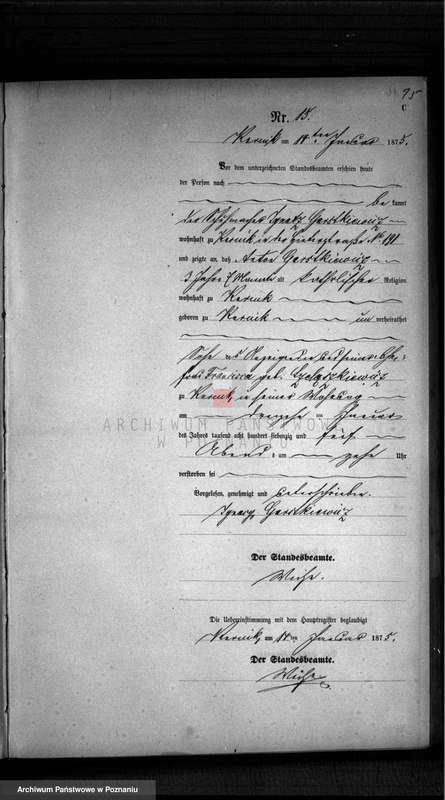 95
C
Nr. 15.
Kurnik am 14ten Januar 1875.
Vor dem unterzeichneten Standesbeamten erschien heute
der Person nach
be kannt
der Schuhmacher Ignatz Garstkiewicz
wohnhaft zu Kurnik in der No. 191
und zeigte an, daß Anton Garstkiewicz
3 Jahre 7 Monate alt katholischer Religion
wohnhaft zu Kurnik
geboren zu Kurnik un verheirathet
Sohn des Anzeigenden und seiner Ehe-
frau Francisca geb.
zu Kurnik, in seiner Wohnung
am dreizehn ten Januar
des Jahres tausend acht hundert siebenzig und fünf
Abend s um zehn Uhr
verstorben sei
Vorgelesen, genehmigt und unterschrieben.
Ignacy Garstkiewicz
Der Standesbeamte.
Die Uebereinstimmung mit dem Hauptregister beglaubigt
Kurnik, am 14 ten Januar 1875.
Der Standesbeamte.
ARCHIWUM PAŃSTWOWE
W POZNANIU
Archiwum Państwowe w Poznaniu